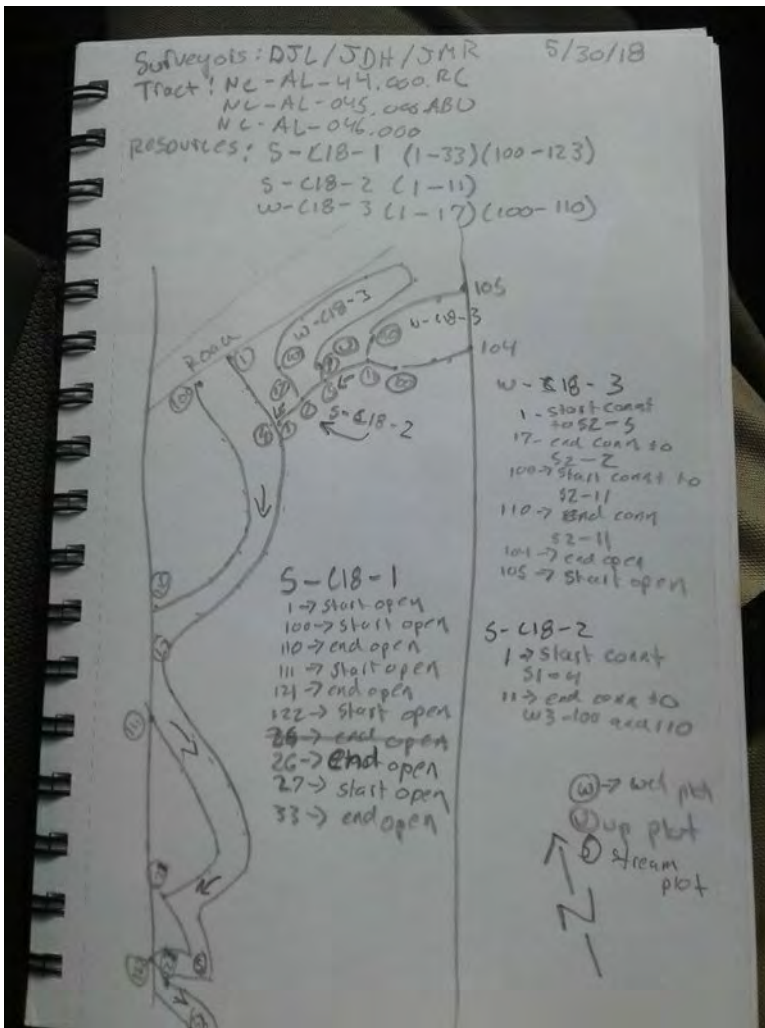 Surveyors: DJL/JDH/JMR 5/30/18
Tract: NC-AL-44.000.RC
NC-AL-045.000.ABU
NC-AL-046.000
Resources: S-C18-1 (1-33)(100-123)
S-C18-2 (1-11)
W-C18-3 (1-17)(100-110)
105
W-C18-3
W-C18-3
Road
1
104
S-C18-2
W-C18-3
1 - start connt
to S2-5
17 - end conn to
S2-2
100 -> start connt to
S2-11
110 -> end conn
S2-11
104 -> end open
105 -> start open
S-C18-1
1 -> start open
100 -> start open
110 -> end open
111 -> start open
121 -> end open
122 -> start open
26 -> end open
26 -> end open
27 -> start open
33 -> end open
S-C18-2
1 -> start connt
S1-4
11 -> end conn to
W3-100 and 110
W -> wet plot
U up plot
S stream
plot
N